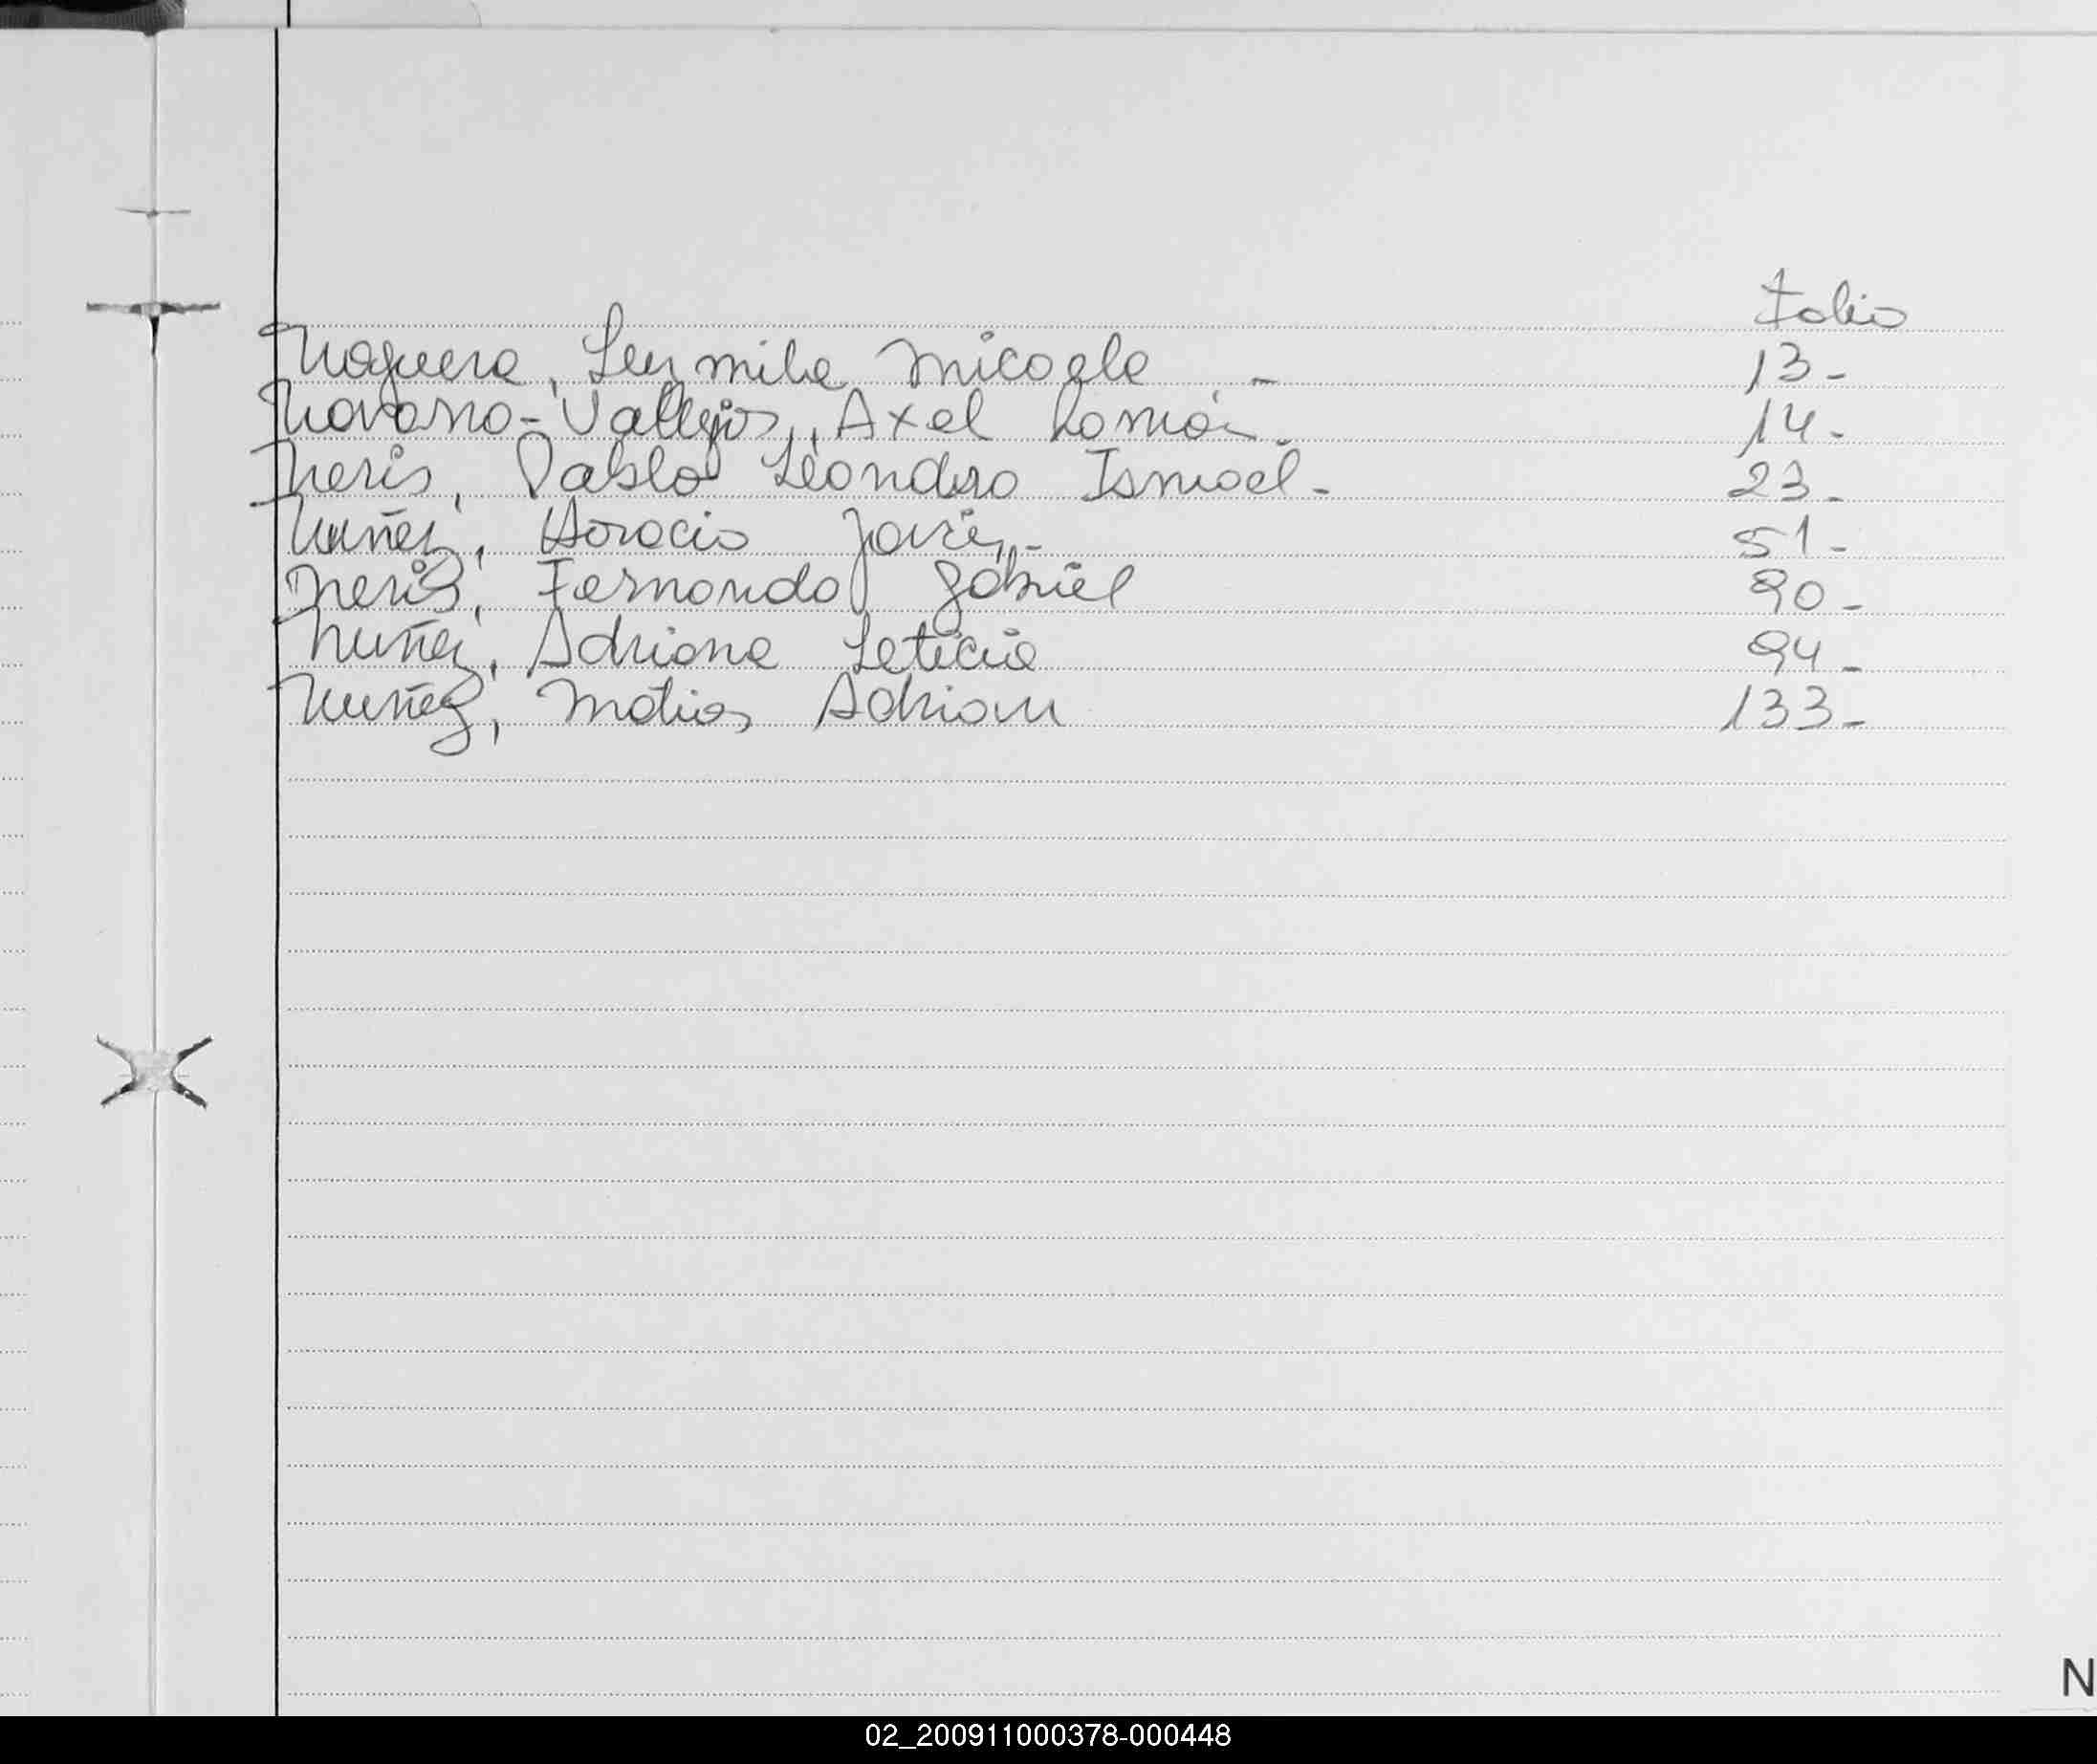 Folio
Noguera, Luzmila Micaela - 13-
Navarro-Vallejos, Axel Román. 14-
Neris, Pablo Leandro Ismael- 23-
Nuñez, Horacio Javier- 51-
Neris, Fernando Gabriel 90-
Nuñez, Adriana Leticia 94-
Nuñez, Matias Adrian 133-
N
02_200911000378-000448